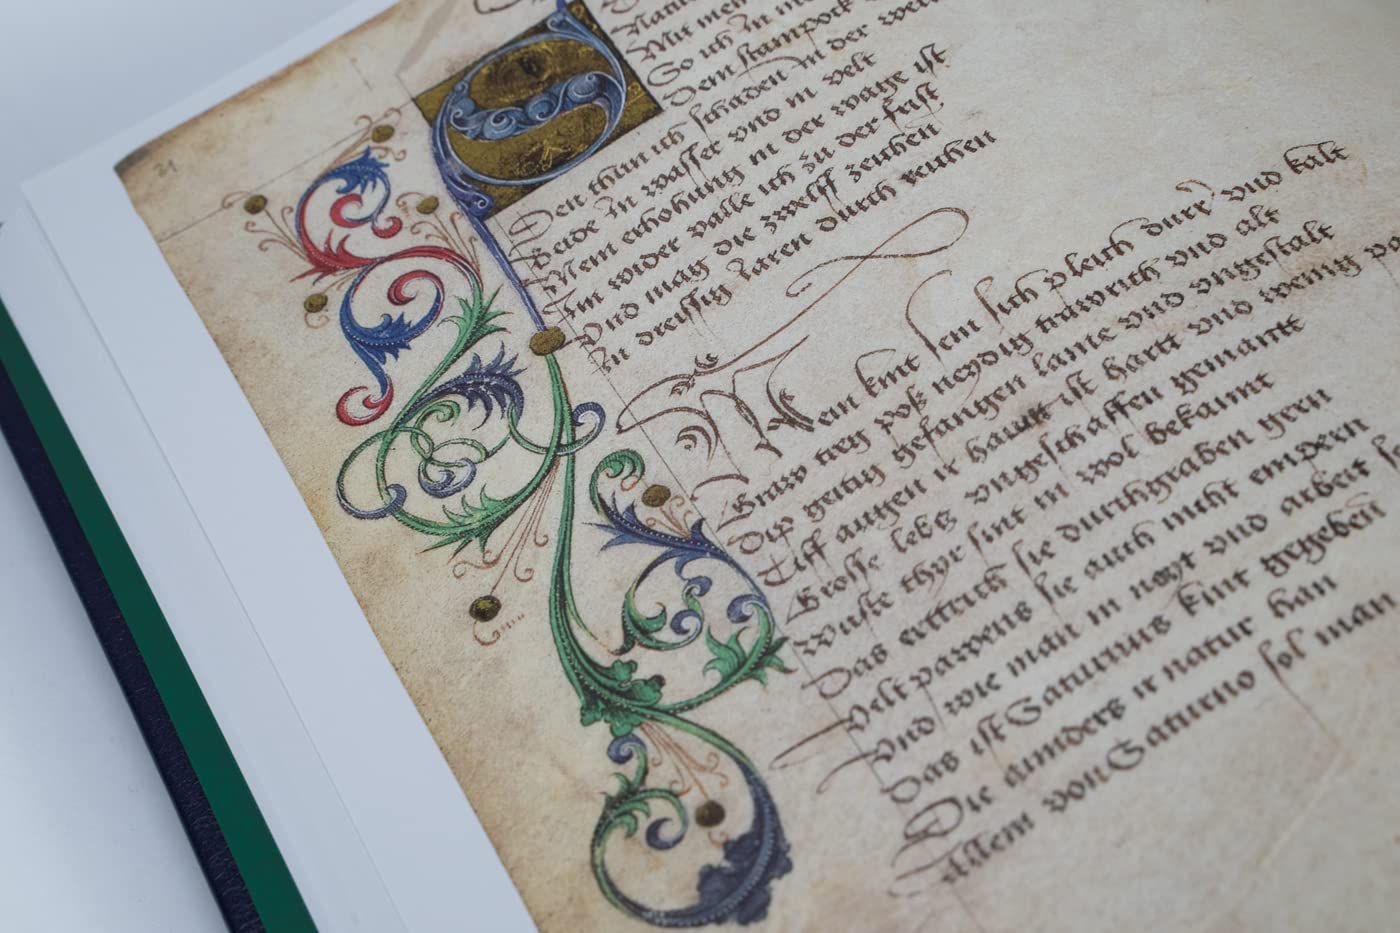 21
Natur
Mit mein
So ich in mein
Dem stainpock
Den thun ich schaden in der welt
Beide in wasser vnd in velt
Mein erhohung in der wage ist
Im wider valle ich zu der frist
Vnd mag die zwelff zeichen
In dreissig Jaren durch reichen
Mein kint sein sich pleich durr vnd kalt
Graw treg poß neydig trawrich vnd alt
Dip geitig gefangen lame vnd vngestalt
Tiff augen ir hawtt ist hartt vnd wenig
Grosse lebs vngeschaffen gewantt
Wuste thyr sint in wol bekaint
Das ertrich sie durchgraben gern
velt pawens sie auch nicht empern
Vnd wie man in nott vnd arbeit
Das ist Saturnus kint gegeben
Die annders ir natur han
Allein von Saturno sol man